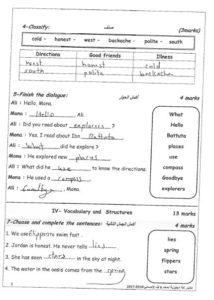 4-Classify: صنف (3marks)
cold - honest - west - backache - polite - south
Directions Good friends Illness
west honest cold
south polite backache
5-Finish the dialogue: أكمل الحوار 4 marks
Ali : Hello, Mona.
Mona : Hello Ali.
Ali : Did you read about explorers ?
Mona : Yes. I read about Ibn Battuta
Ali : What did he explore ?
Mona : He explored new places
Ali : What did he use to know the directions.
Mona : He used a compass
Ali : , Mona.
What
Hello
Battuta
places
use
compass
Goodbye
explorers
IV- Vocabulary and Structures 13 marks
7-Choose and complete the sentences: 4 marks
1. We use flippers swim fast .
2. Jordan is honest. He never tells lies
3. She has seen stars in the sky at night.
4. The water in the oasis comes from the spring
lies
spring
flippers
stars
2017-2018